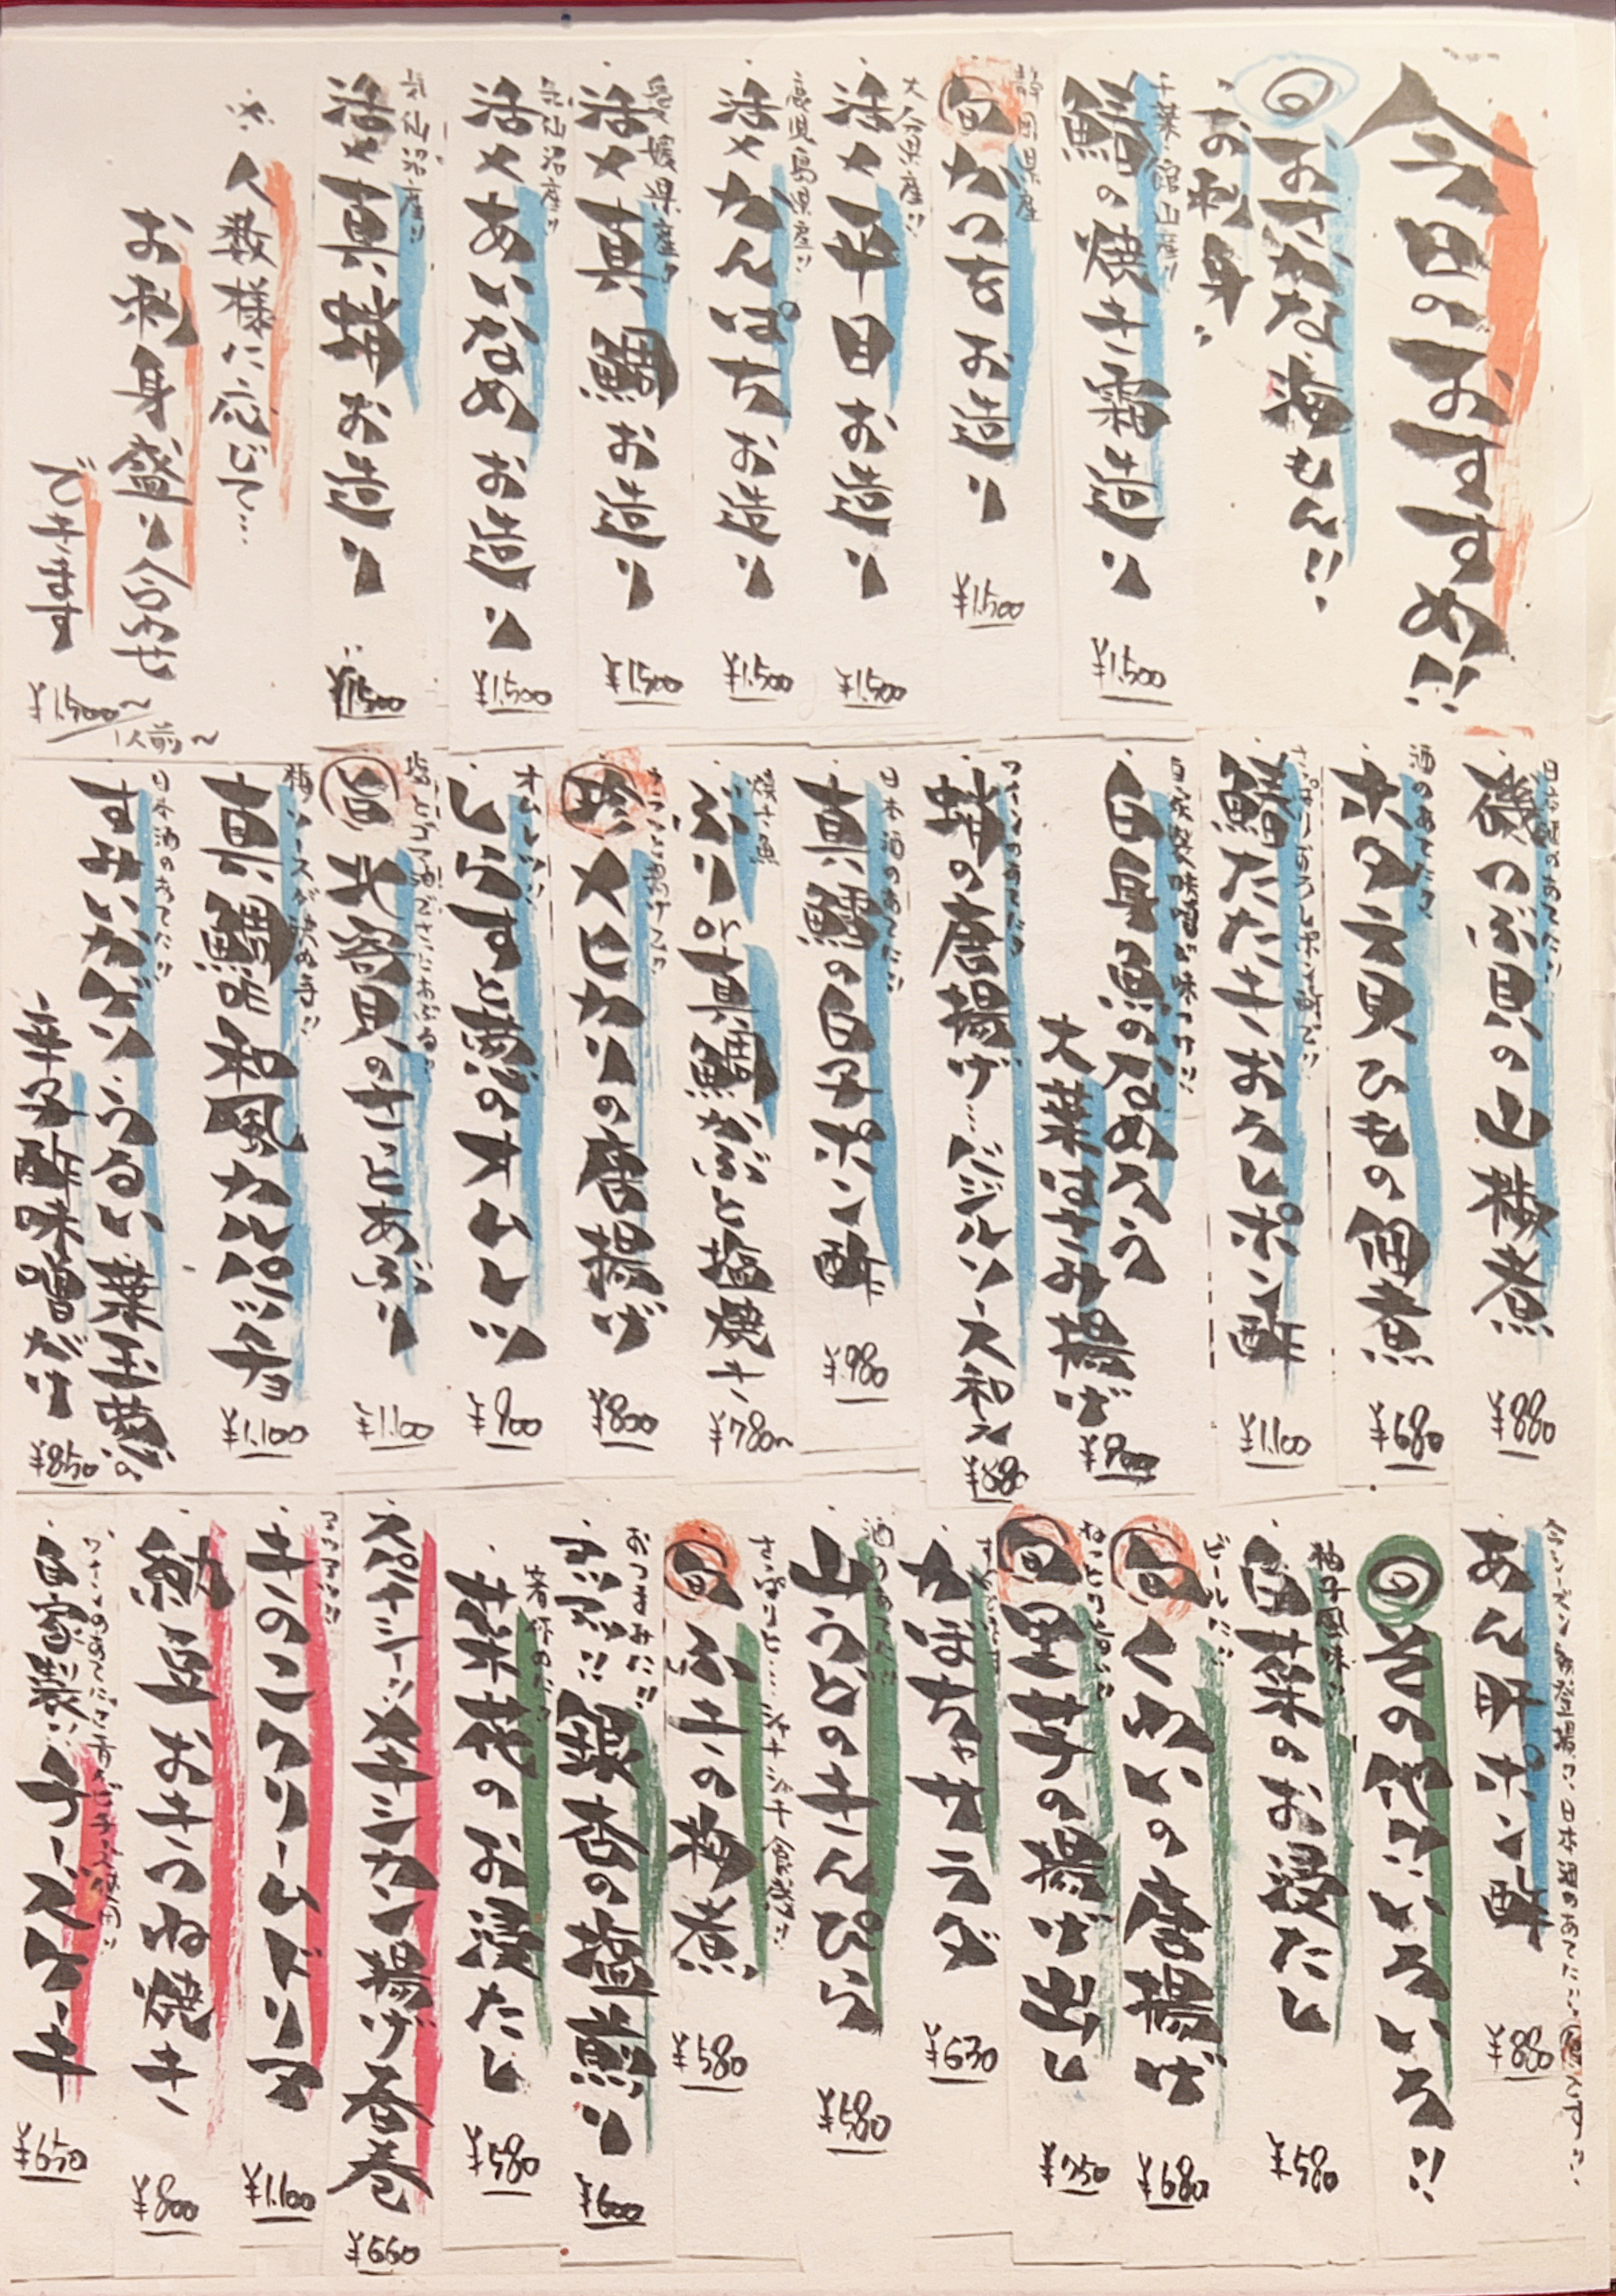 今日のおすすめ!!
◎おさかな・海もん!!
お刺身
千葉・館山産!!
鰆の焼き霜造り
¥1.500
静岡県産
旬 かつお お造り
¥1.500
大分県産!!
活〆平目お造り
¥1.500
鹿児島県産!!
活〆かんぱちお造り
¥1.500
愛媛県産!!
活〆真鯛お造り
¥1.500
気仙沼産!!
活〆あいなめお造り
¥1.500
気仙沼産!!
活〆真蛸お造り
¥1.500
※人数様に応じて…
お刺身盛り合わせ
できます
¥1.500〜
1人前〜
日本酒のあてに!!
磯つぶ貝の山椒煮
¥880
酒のあてに!!
ホタテ貝ひもの佃煮
¥680
さっぱりおろしポン酢で!!
鰆たたきおろしポン酢
¥1.100
白身魚のなめろう
大葉はさみ揚げ
¥900
蛸の唐揚げ…バジル大和え
¥880
日本酒のあてに!!
真鱈の白子ポン酢
¥980
焼き魚
ぶりor真鯛かぶと塩焼き
¥780〜
珍 メヒカリの唐揚げ
¥800
オムレツ!!
しらすと葱のオムレツ
¥900
北寄貝のさっとあぶり
¥1.100
梅ソースが決め手!!
真鯛和風カルパッチョ
¥1.100
日本酒のあてに!!
すみいか・ぶり・うるい・葉玉葱の
辛子酢味噌だれ
¥850
あん肝ポン酢
¥880
◎その他いろいろ!!
柚子風味!!
白菜のお浸たし
¥580
ビールに!!
旬 くわいの唐揚げ
¥680
旬 里芋の揚げ出し
¥750
かぼちゃサラダ
¥630
酒のあてに!!
山うどのきんぴら
¥580
旬 ふきの梅煮
¥580
おつまみに!!
煎りたて!! 銀杏の塩煎り
¥600
菜花のお浸たし
¥580
スパイシーメキシカン揚げ春巻
¥660
アツアツ!!
きのこクリームドリア
¥1.100
納豆おきつね焼き
¥800
自家製!!チーズケーキ
¥650